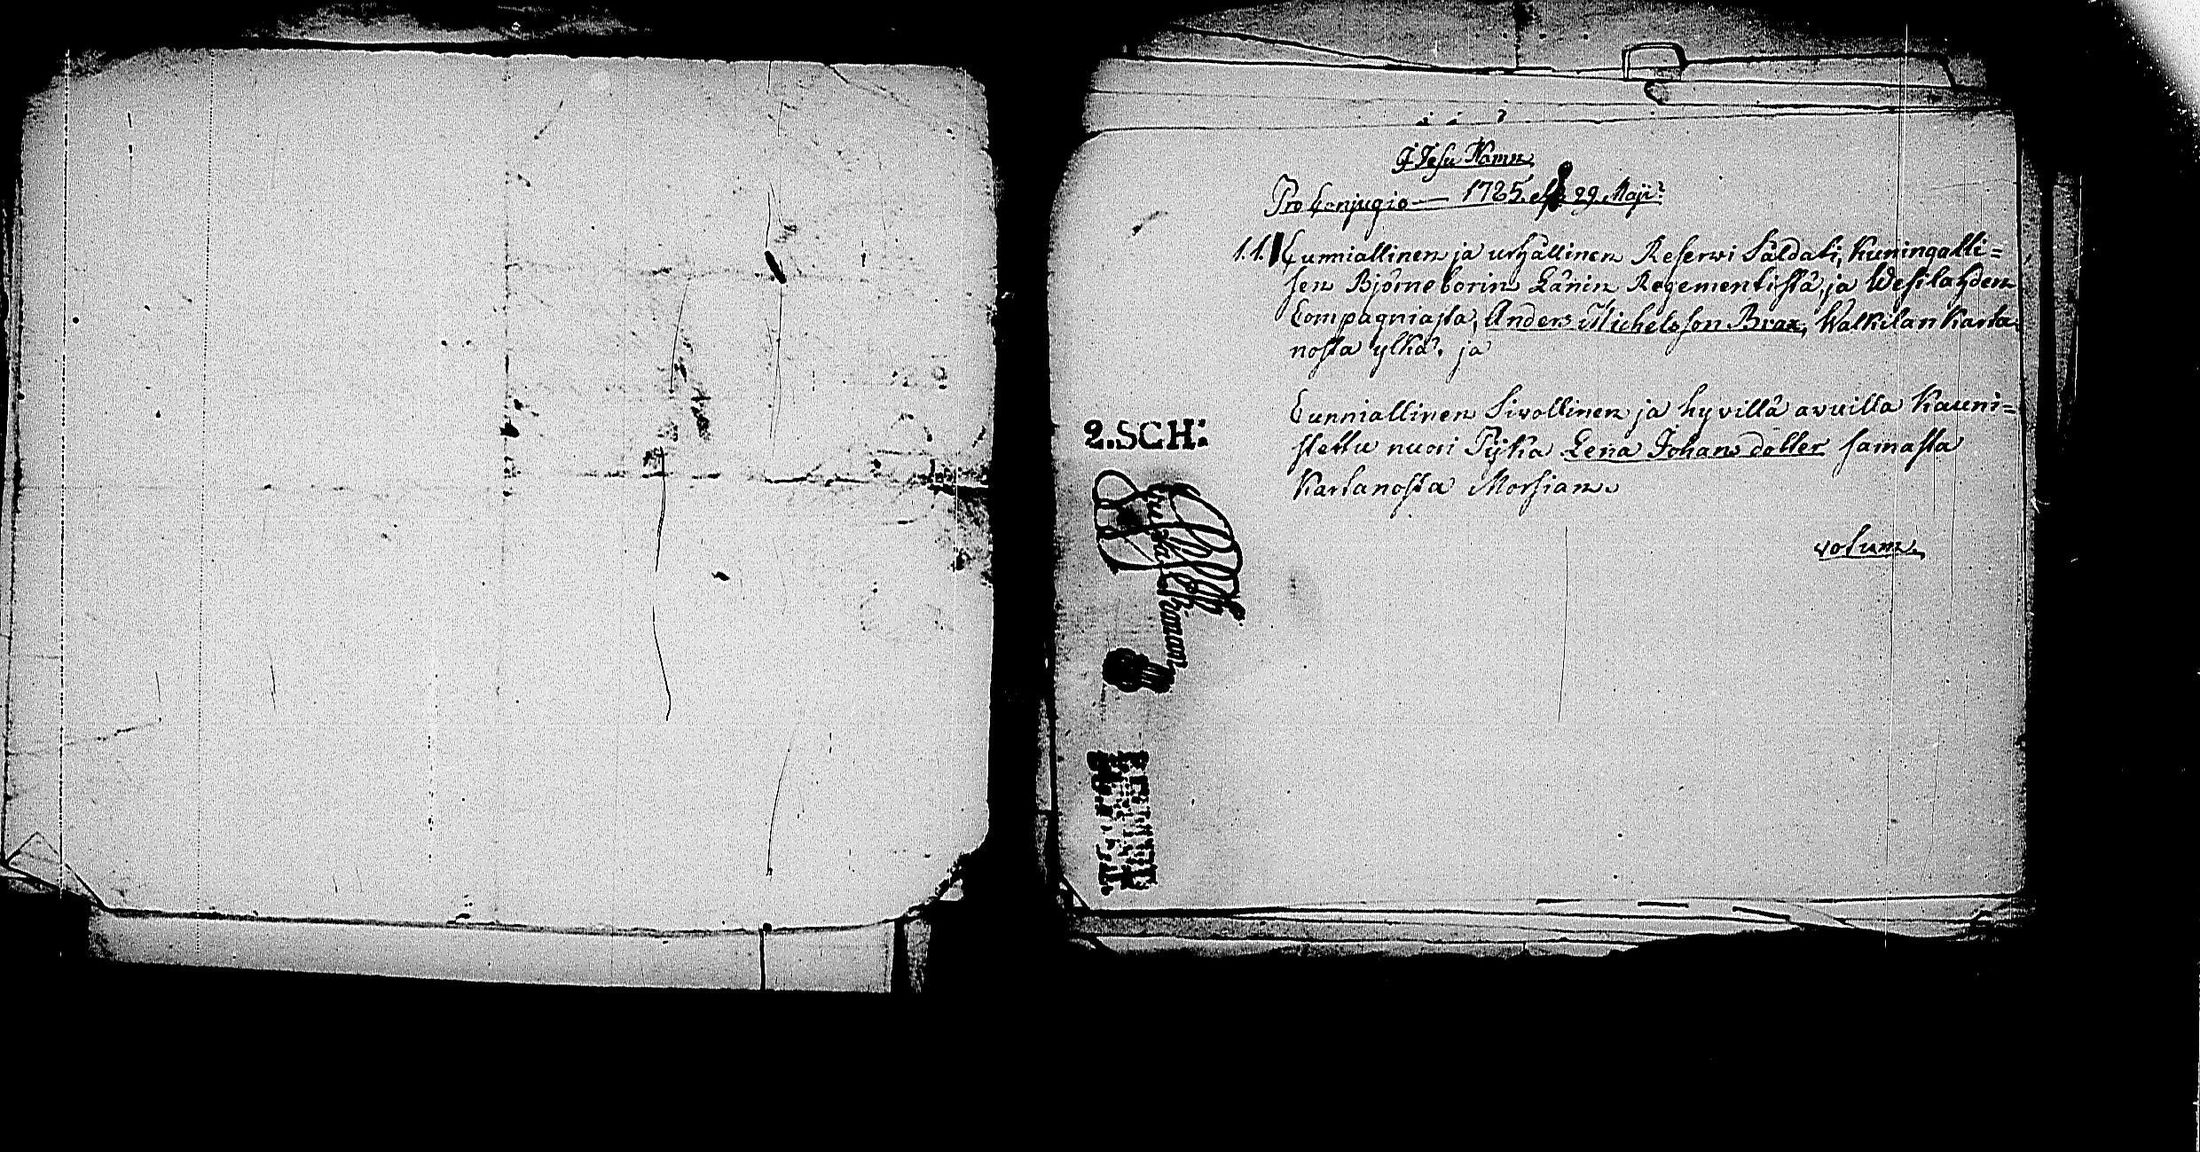 J Jesu Namn
Pro Conjugio — 1785. 29 Maji:
1.1. Cunniallinen ja urhallinen Reserwi Saldati, Kuningalli=
sen Björneborin Länin Regementistä, ja Wesilahden
Compagniasta, Anders Michelsson Brax, Walkilan Karta
nosta ylkä, ja
Cunniallinen Siwollinen ja hyvillä avuilla Kauni=
stettu nuori Pijka Lena Johans dotter samasta
Kartanosta Morsian.
votum.
2.SCH: